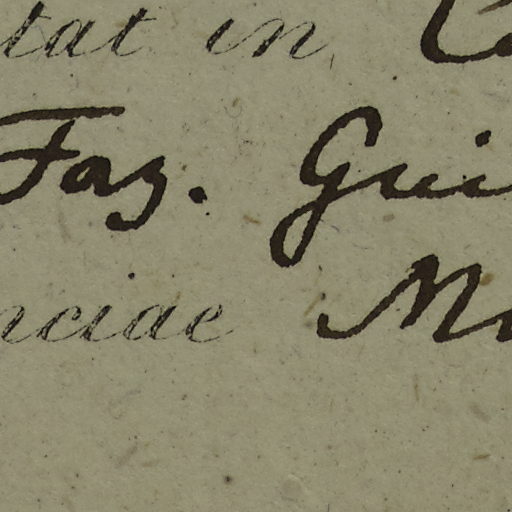 tat in
Faz. Gui
nciae